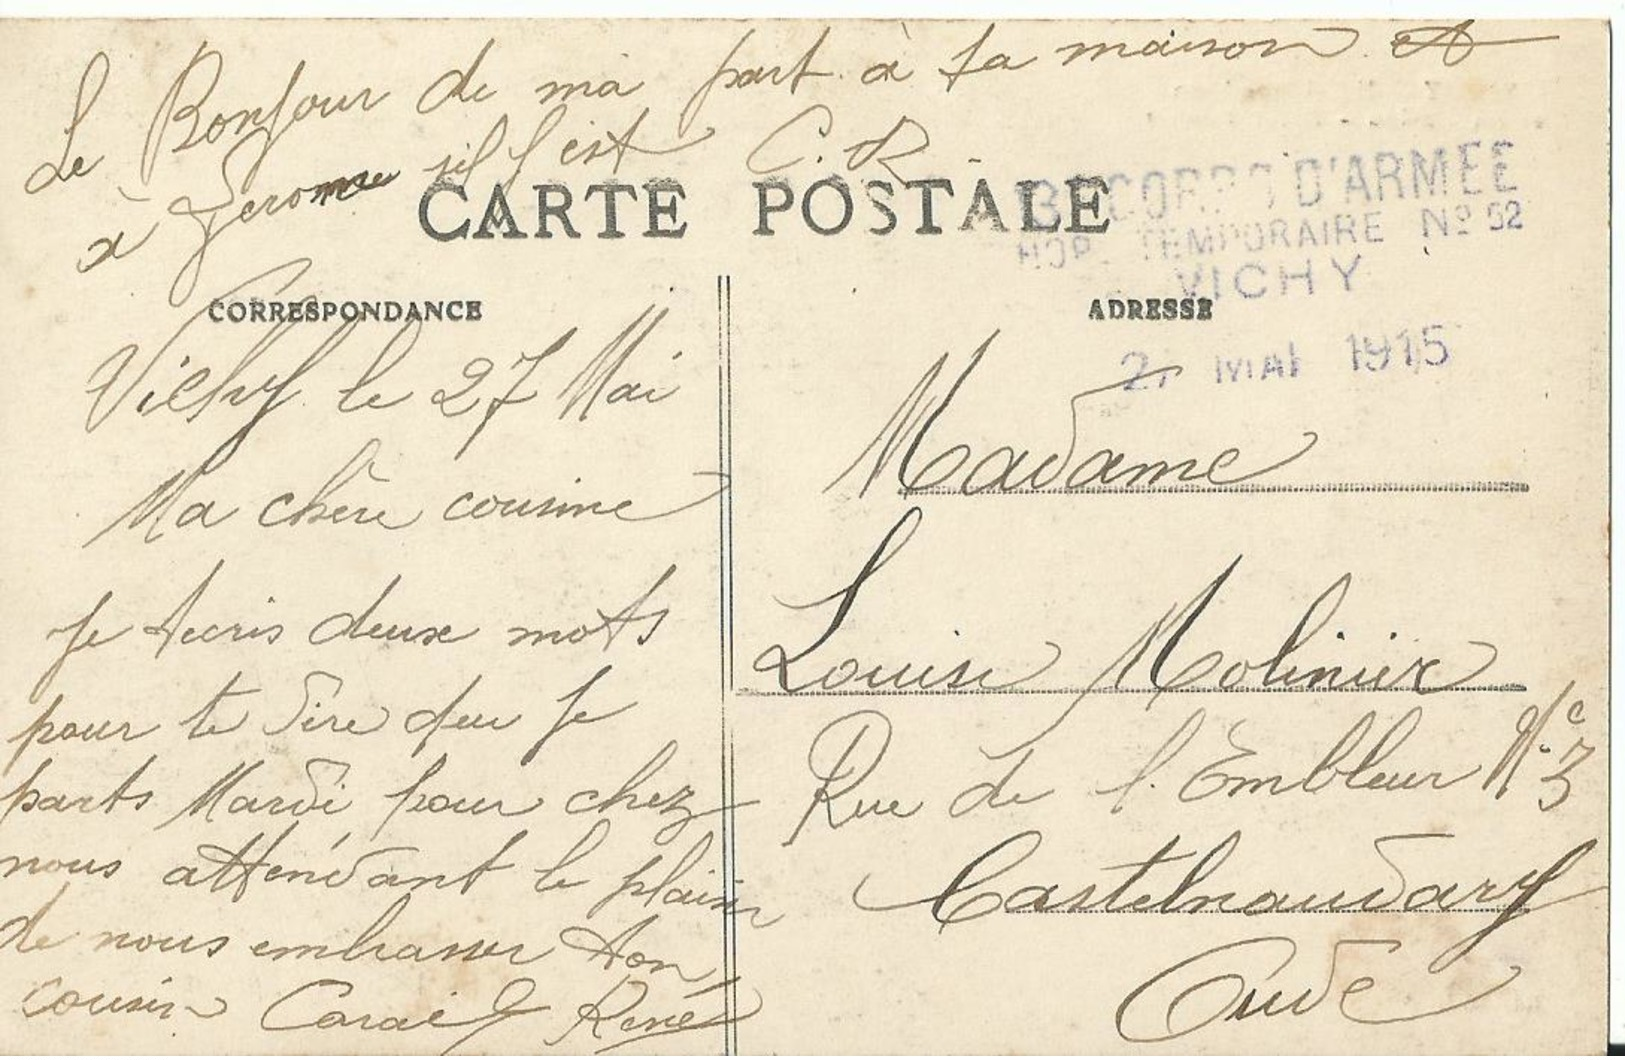 Le Bonjour de ma part à ta maison et
à Jerome s'il l'est C. R.
CARTE POSTALE
13E CORPS D'ARMÉE
HOP. TEMPORAIRE No 52
VICHY
27 MAI 1915
CORRESPONDANCE
Vichy le 27 Mai
Ma chère cousine
Je t'ecris deux mots
pour te dire que Je
parts Mardi pour chez
nous attendant le plaisir
de nous embrasser ton
cousin René
ADRESSE
Madame
Louise Molinier
Rue de l'Embleur No 3
Castelnaudary
Aude